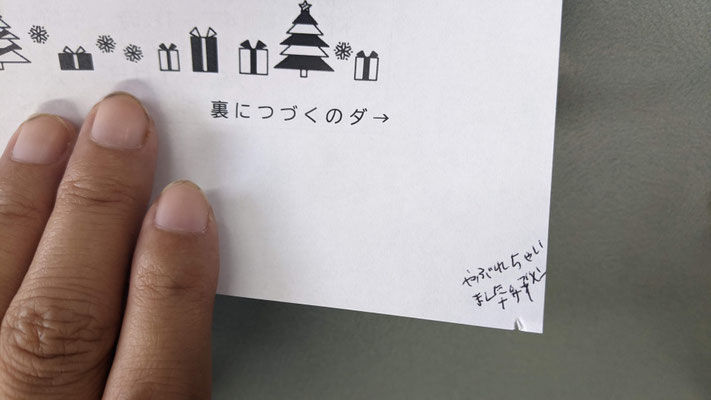 裏につづくのダ→
やぶれちゃい
ました